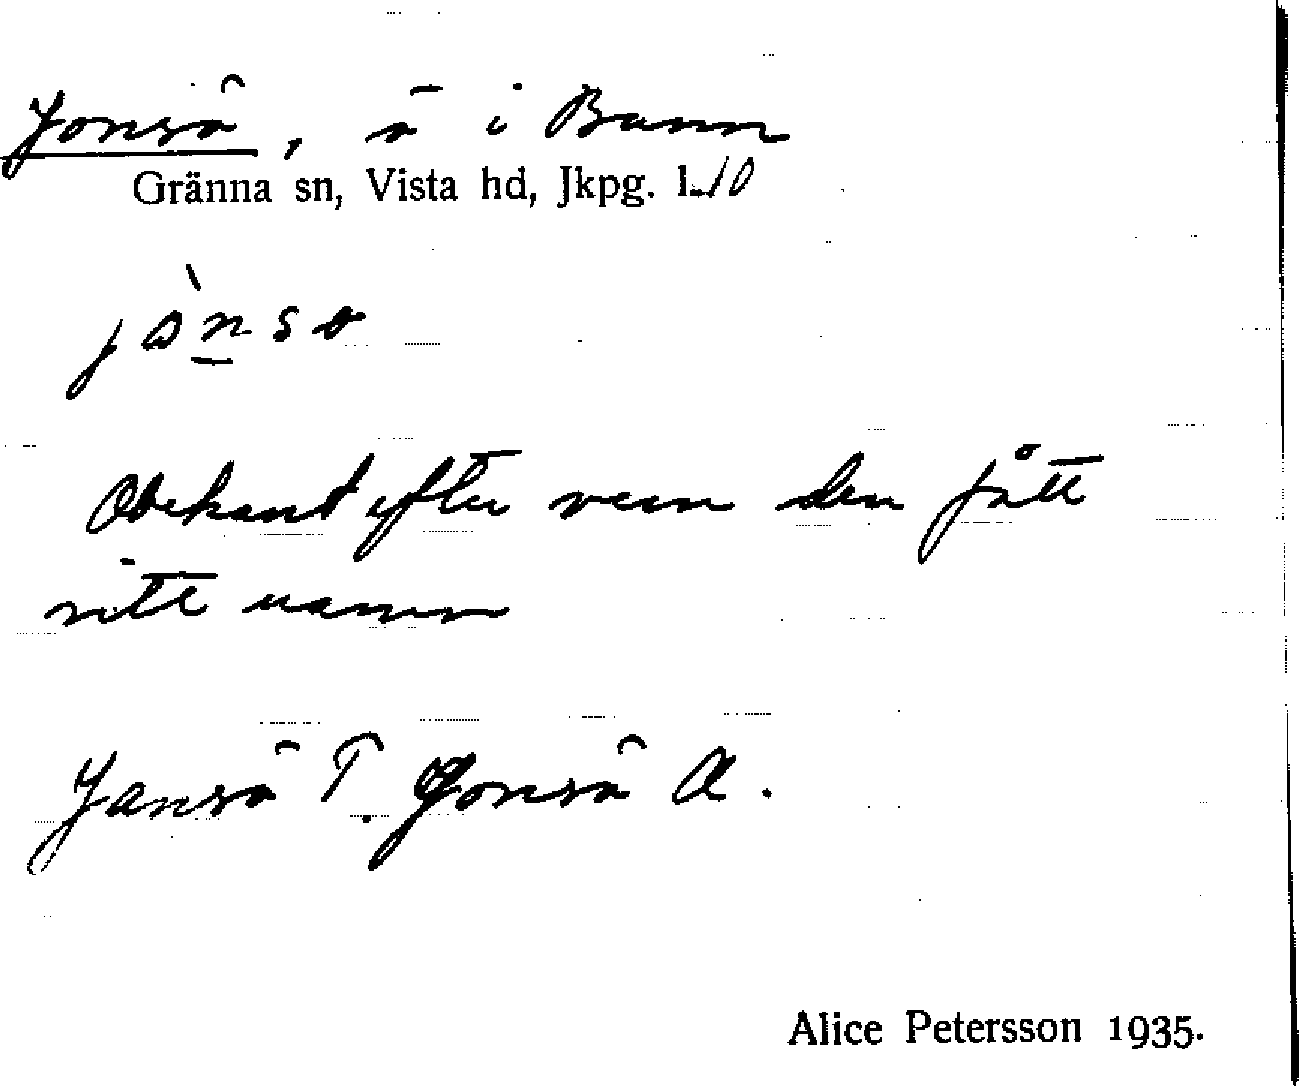 Jonsö, ö i Bunn
Gränna sn, Vista hd, Jkpg. l. 10
jònso
Obekant efter vem den fått
sitt namn
Jansö T. Jonsö A.
Alice Petersson 1935.